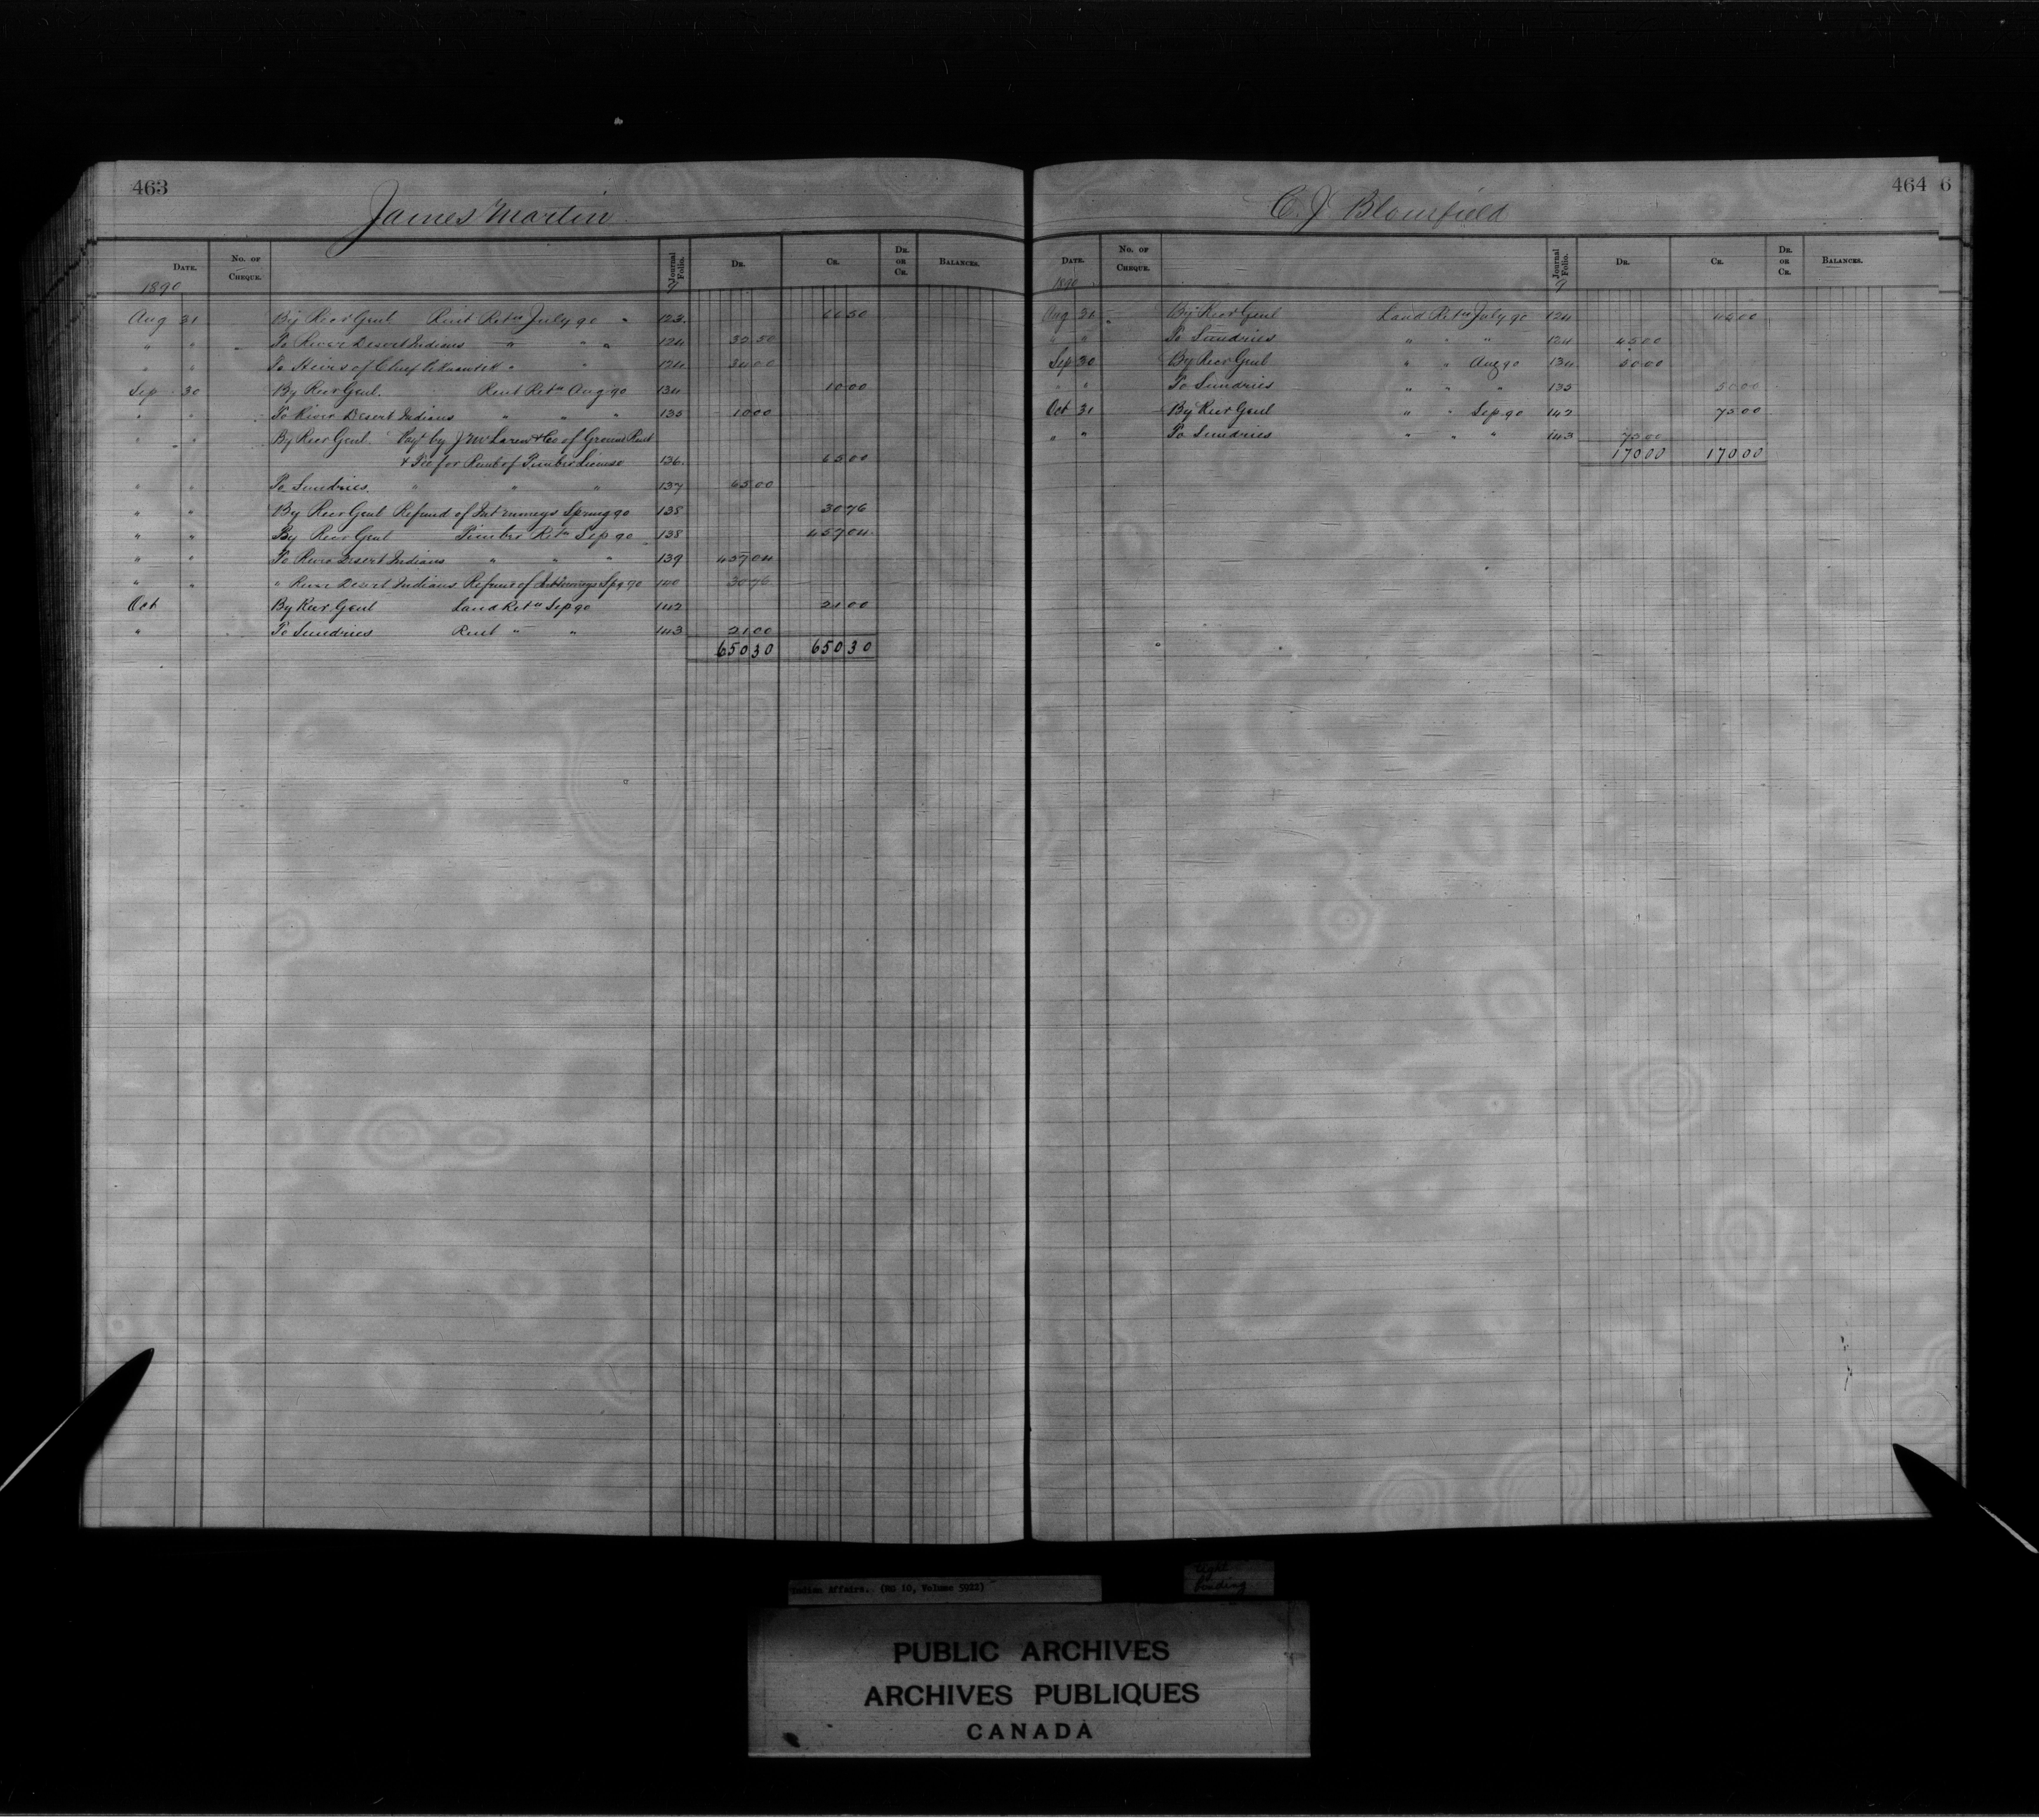 463
James Martin
DATE. No. OF CHEQUE. Journal Folio. DR. CR. DR. OR CR. BALANCES.
1890 9
Aug 31 By Recr Genl Rent Retn July 90 " 123 66 50
" " To River Desert Indians " " " 124 32 50
" " To Heirs of Chief " " 124 34 00
Sep 30 By Recr Genl. Rent Retn Aug 90 134 10 00
" " To River Desert Indians " " " 135 10 00
" " By Recr Genl Payt by J McLaren & Co of Ground Rent
& Fee for Renl of Timber License 136 65 00
" " To Sundries " " " 137 65 00
" " By Recr Genl Refund of Int moneys Spring 90 138 30 76
" " By Recr Genl Timber Retn Sep 90 138 457 04
" " To River Desert Indians " " " 139 457 04
" " " River Desert Indians Refund of Int moneys Spg 90 140 30 76
Oct By Recr Genl Land Retn Sep 90 142 21 00
" To Sundries Rent " " 143 21 00
650 30 650 30
464 6
C. J Blomfield
DATE. No. OF CHEQUE. Journal Folio. DR. CR. DR. OR CR. BALANCES.
1890 9
Aug 31 By Recr Genl Land Retn July 90 124 45 00
" " To Sundries " " " 124 45 00
Sep 30 By Recr Genl " " Aug 90 134 50 00
" " To Sundries " " " 135 50 00
Oct 31 By Recr Genl " " Sep 90 142 75 00
" " To Sundries " " " 143 75 00
170 00 170 00
Indian Affairs. (RG 10, Volume 5922)
tight
binding
PUBLIC ARCHIVES
ARCHIVES PUBLIQUES
CANADA